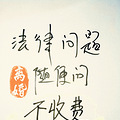 法律问题
离婚
随便问
不收费